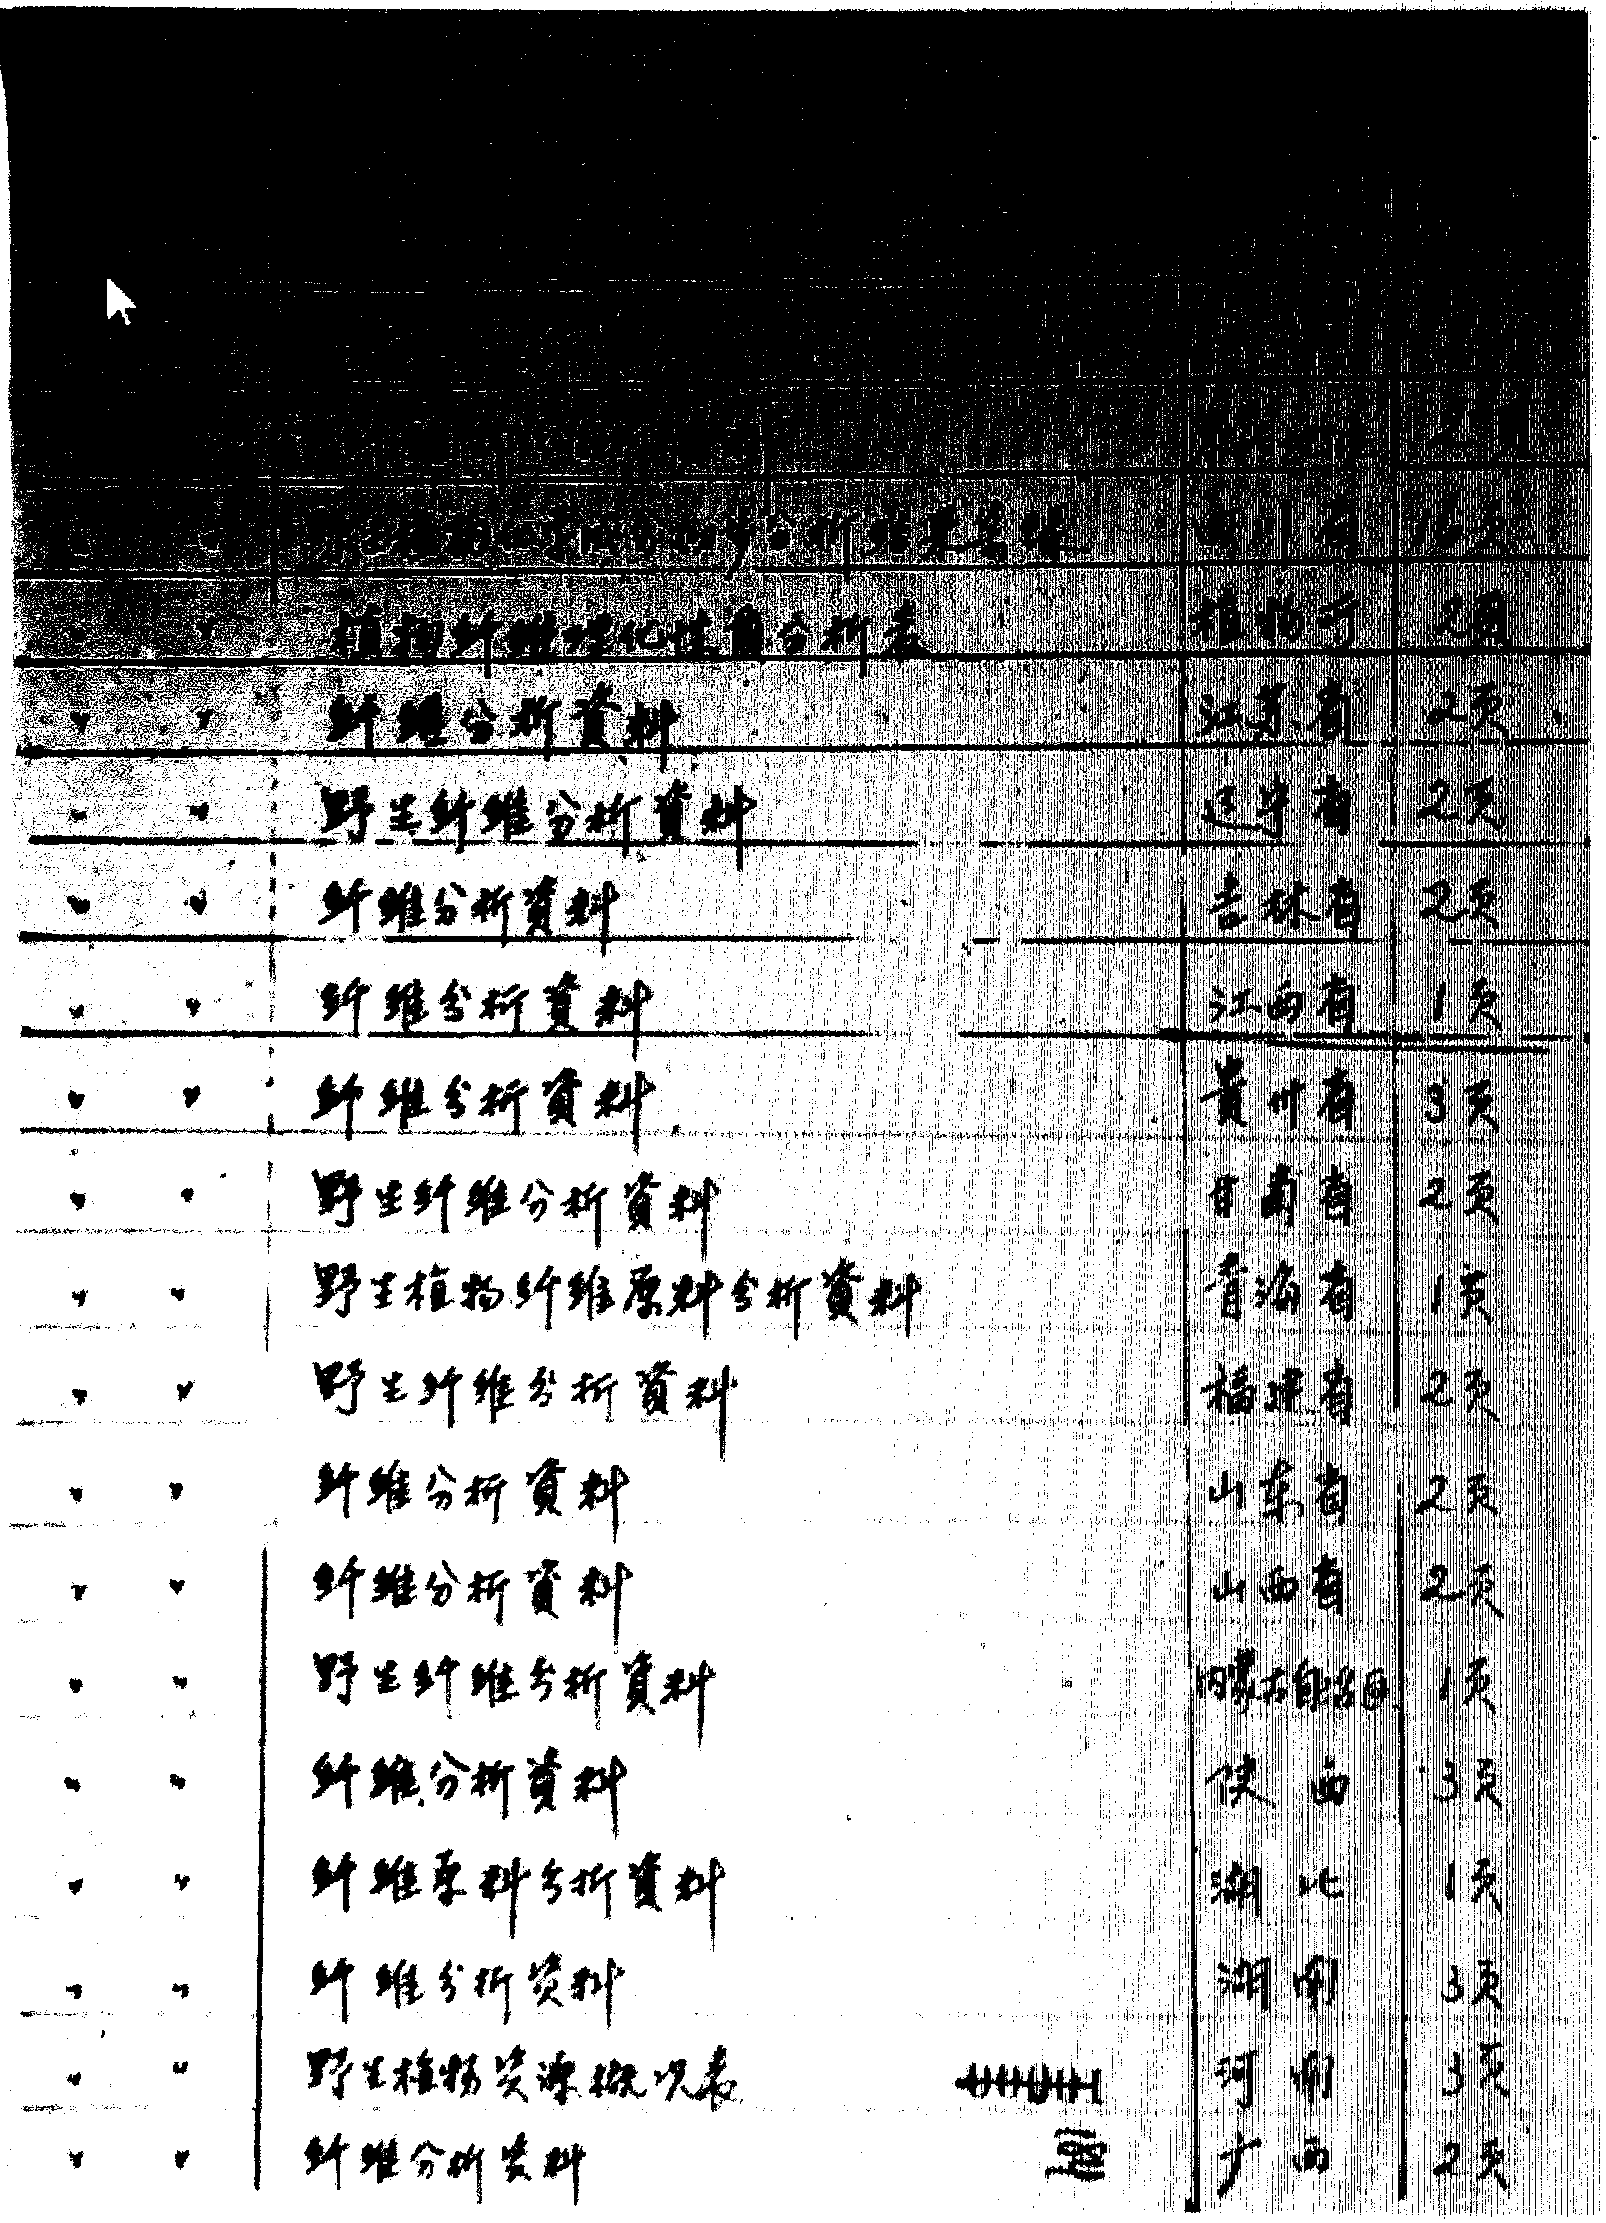 植物纤维理化性质分析表 植物所 2页
纤维分析資料 江苏省 2页
野生纤维分析資料 辽宁省 2页
纤维分析資料 吉林省 2页
纤维分析資料 江西省 1页
纤维分析資料 貴州省 3页
野生纤维分析資料 甘肃省 2页
野生植物纤维原料分析資料 青海省 1页
野生纤维分析資料 福建省 2页
纤维分析資料 山东省 2页
纤维分析資料 山西省 2页
野生纤维分析資料 内蒙古自治区 1页
纤维分析資料 陕西 3页
纤维原料分析資料 湖北 1页
纤维分析资料 湖南 3页
野生植物资源概况表 河南 3页
纤维分析资料 广西 2页